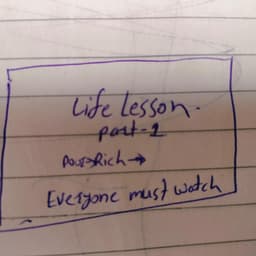 Life Lesson.
part-1
Poor→Rich→
Everyone must watch